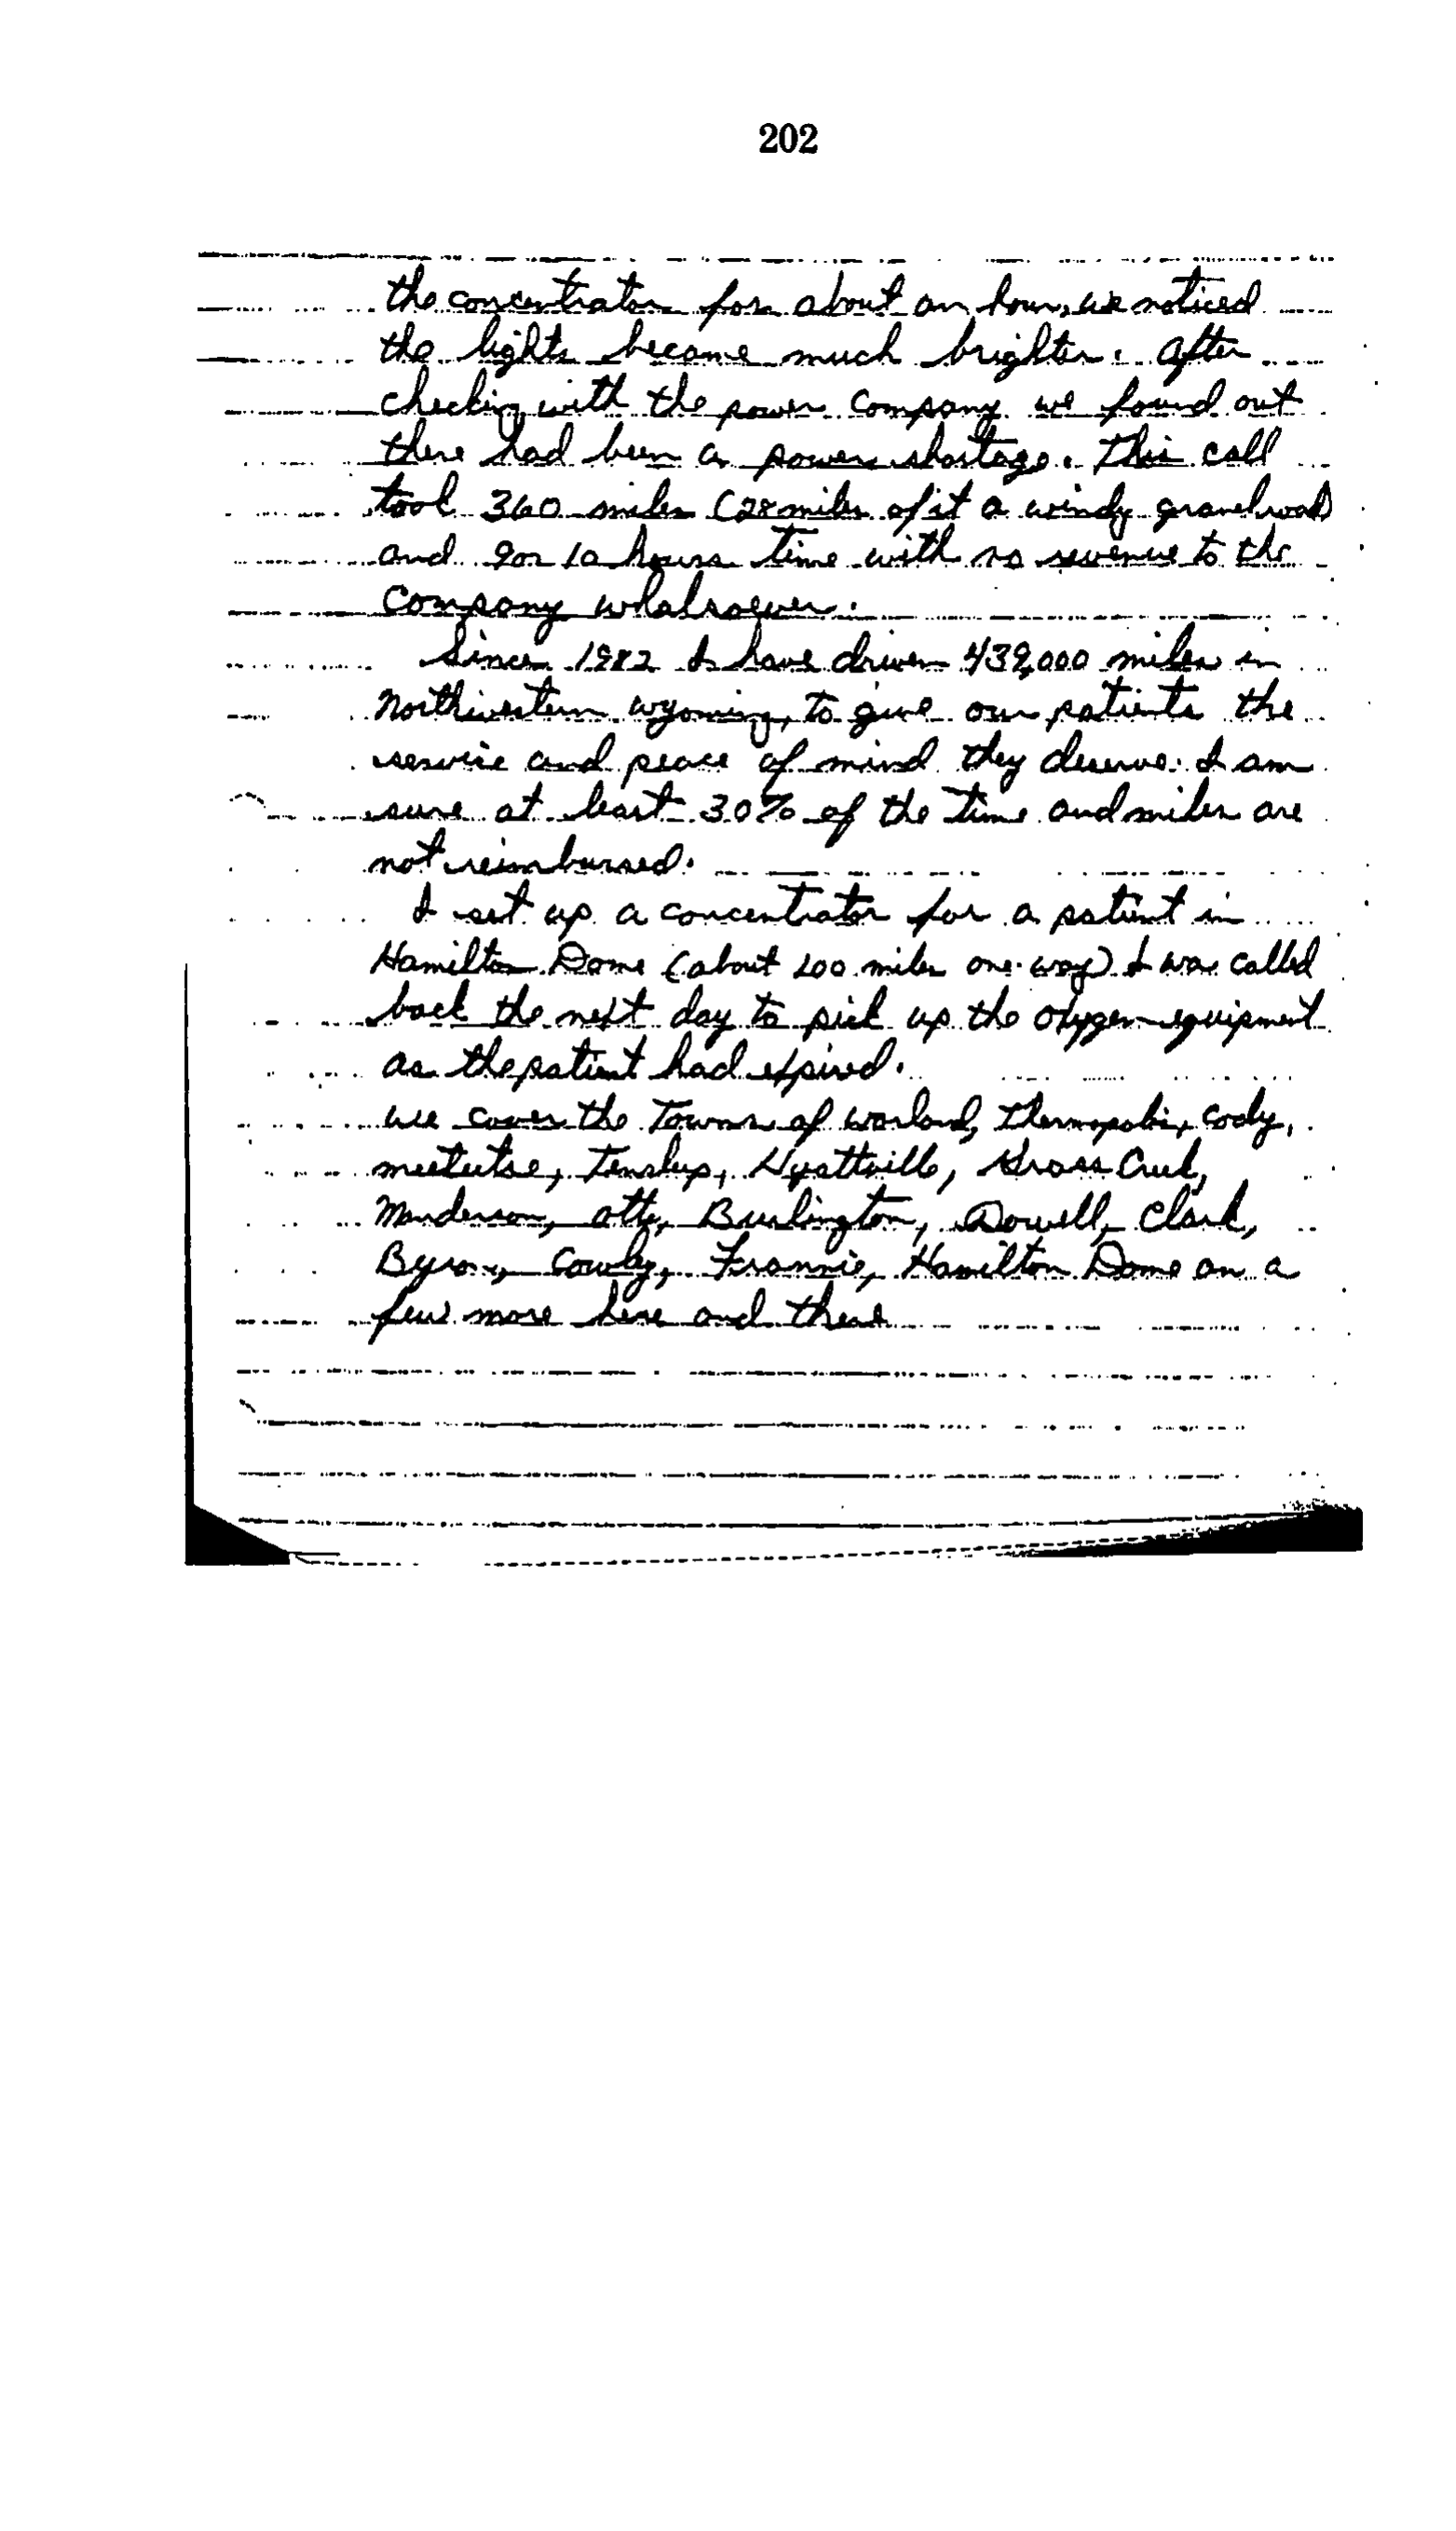 202
the concentrator for about an hour, we noticed
the lights became much brighter. After
checking with the power company we found out
there had been a power shortage. This call
took 360 miles (28 miles of it a windy gravel road)
and 9 or 10 hours time with no revenue to the
company whatsoever.
Since 1982 I have driven 439,000 miles in
Northwestern Wyoming, to give our patients the
service and peace of mind they deserve. I am
sure at least 30% of the time and miles are
not reimbursed.
I set up a concentrator for a patient in
Hamilton Dome (about 100 miles one way) I was called
back the next day to pick up the oxygen equipment
as the patient had expired.
We cover the towns of Worland, Thermopolis, Cody,
Meeteetse, Tensleep, Hyattville, Grass Creek,
Manderson, Otto, Burlington, Clark,
Byron, Cowley, Frannie, Hamilton Dome an a
few more here and there